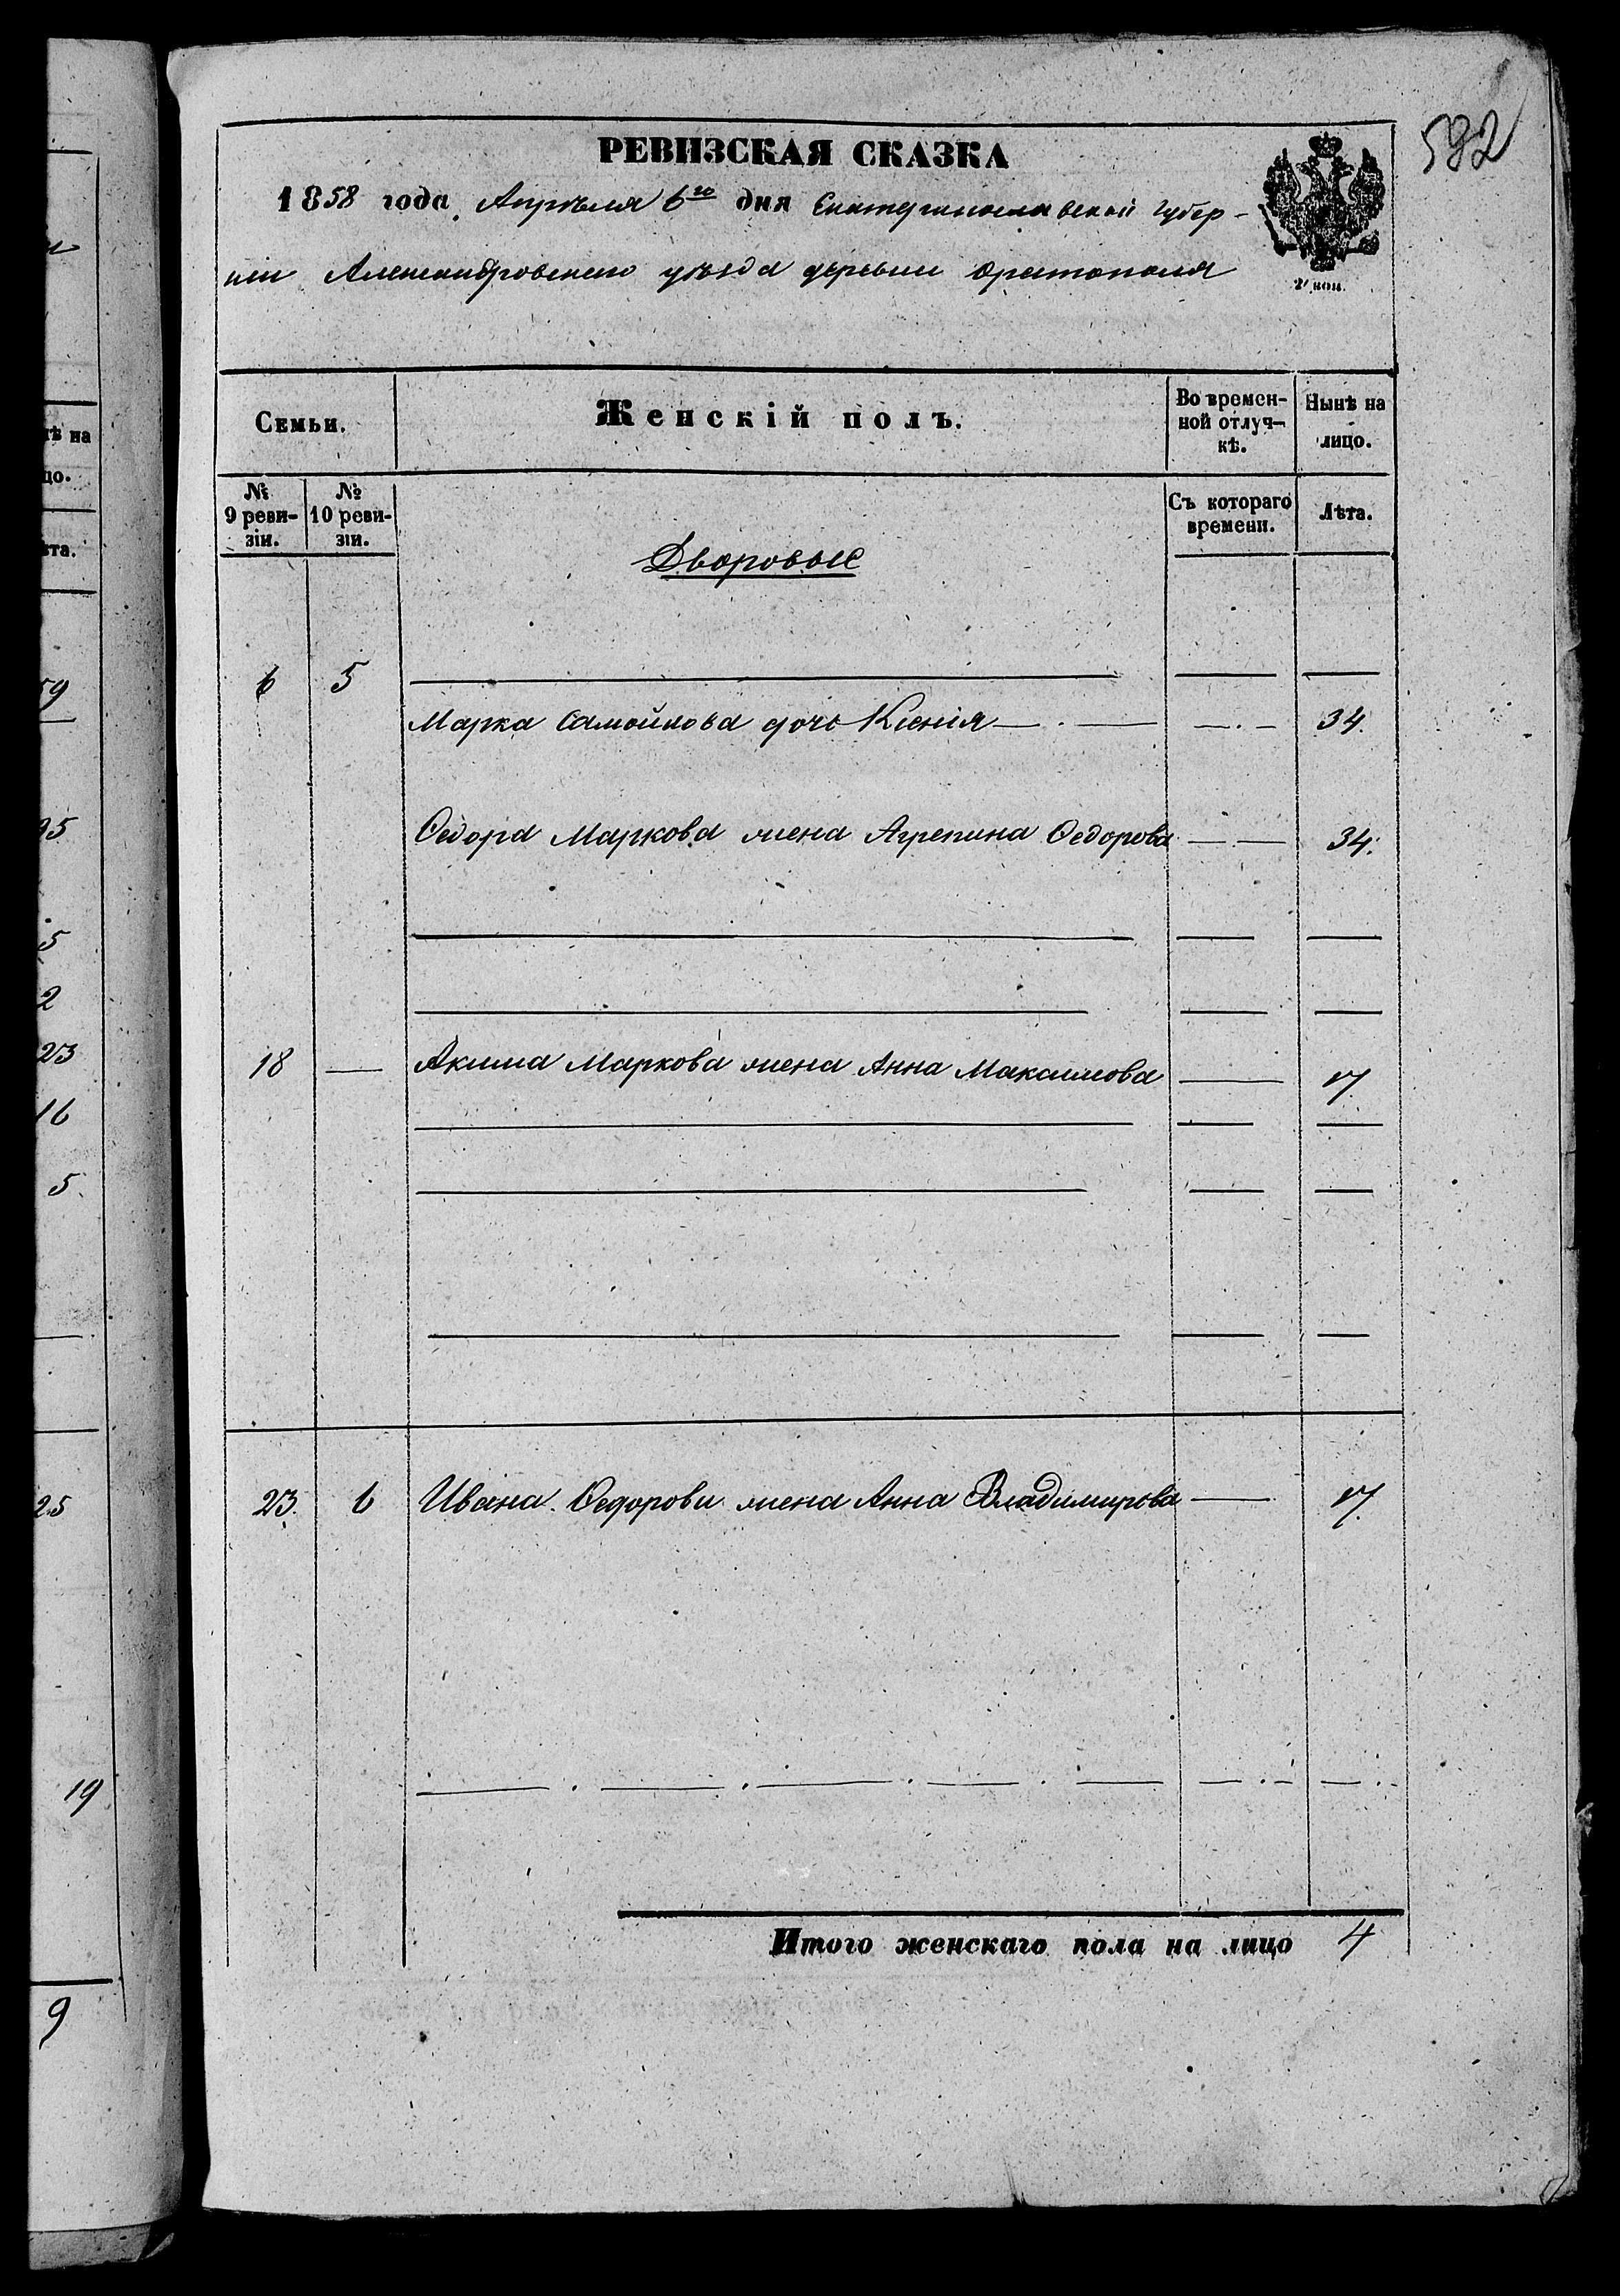 582
РЕВИЗСКАЯ СКАЗКА
1858 года Апрѣля 6го дня Екатеринославской губер-
ніи Александровского уѣзда деревни Орестополя
2 коп.
Семьи.
Женскій полъ.
Во времен-
ной отлуч-
кѣ.
Нынѣ на
лицо.
№
9 реви-
зіи.
№
10 реви-
зіи.
Съ котораго
времени.
Лѣта.
Дворовые
6 5
Марка Самойлова дочь Ксенія 34.
Ѳедора Маркова жена Агрепина Ѳедорова 34.
18 — Акима Маркова жена Анна Максимова 17.
23. 6 Ивана Ѳедорова жена Анна Владимирова 17.
Итого женскаго пола на лицо 4
нѣ на
цо.
ѣта.
59
95
5
2
23
16
5.
25
19
9